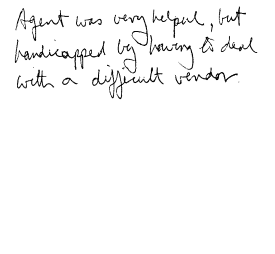 Agent was very helpful, but
handicapped by having to deal
with a difficult vendor.